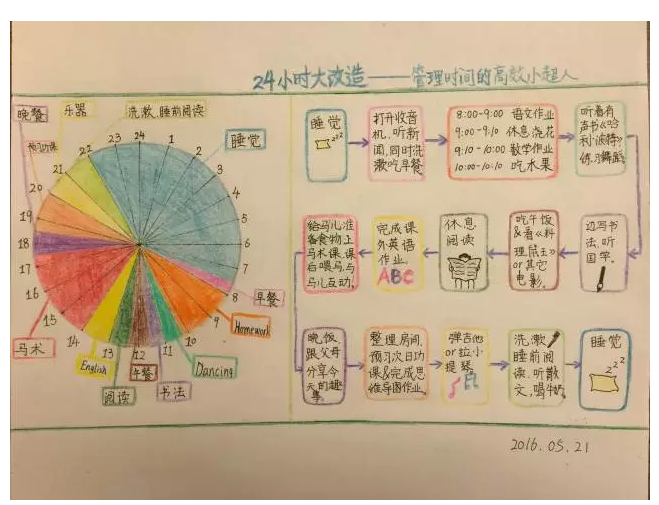 24小时大改造——管理时间的高效小超人
晚餐
乐器
洗漱、睡前阅读
预习功课
睡觉
24
1
2
3
4
5
6
7
8
9
10
11
12
13
14
15
16
17
18
19
20
21
22
23
早餐
Homework
Dancing
书法
午餐
阅读
English
马术
睡觉
zzz
打开收音
机，听新
闻，同时洗
漱吃早餐。
8:00-9:00 语文作业
9:00-9:10 休息，浇花
9:10-10:00 数学作业
10:00-10:10 吃水果
听着有
声书《哈
利·波特》
练习舞蹈。
边写书
法，听
国学。
吃午饭
&看《料
理鼠王》
or其它
电影。
休息
阅读
完成课
外英语
作业。
ABC
给马儿准
备食物，上
马术课，课
后喂马，与
马儿互动。
晚饭
跟父母
分享今
天的趣
事。
整理房间，
预习次日功
课&完成思
维导图作业。
弹吉他
or拉小
提琴
洗漱，
睡前阅
读，听散
文，喝牛奶。
睡觉
zzz
2016.05.21